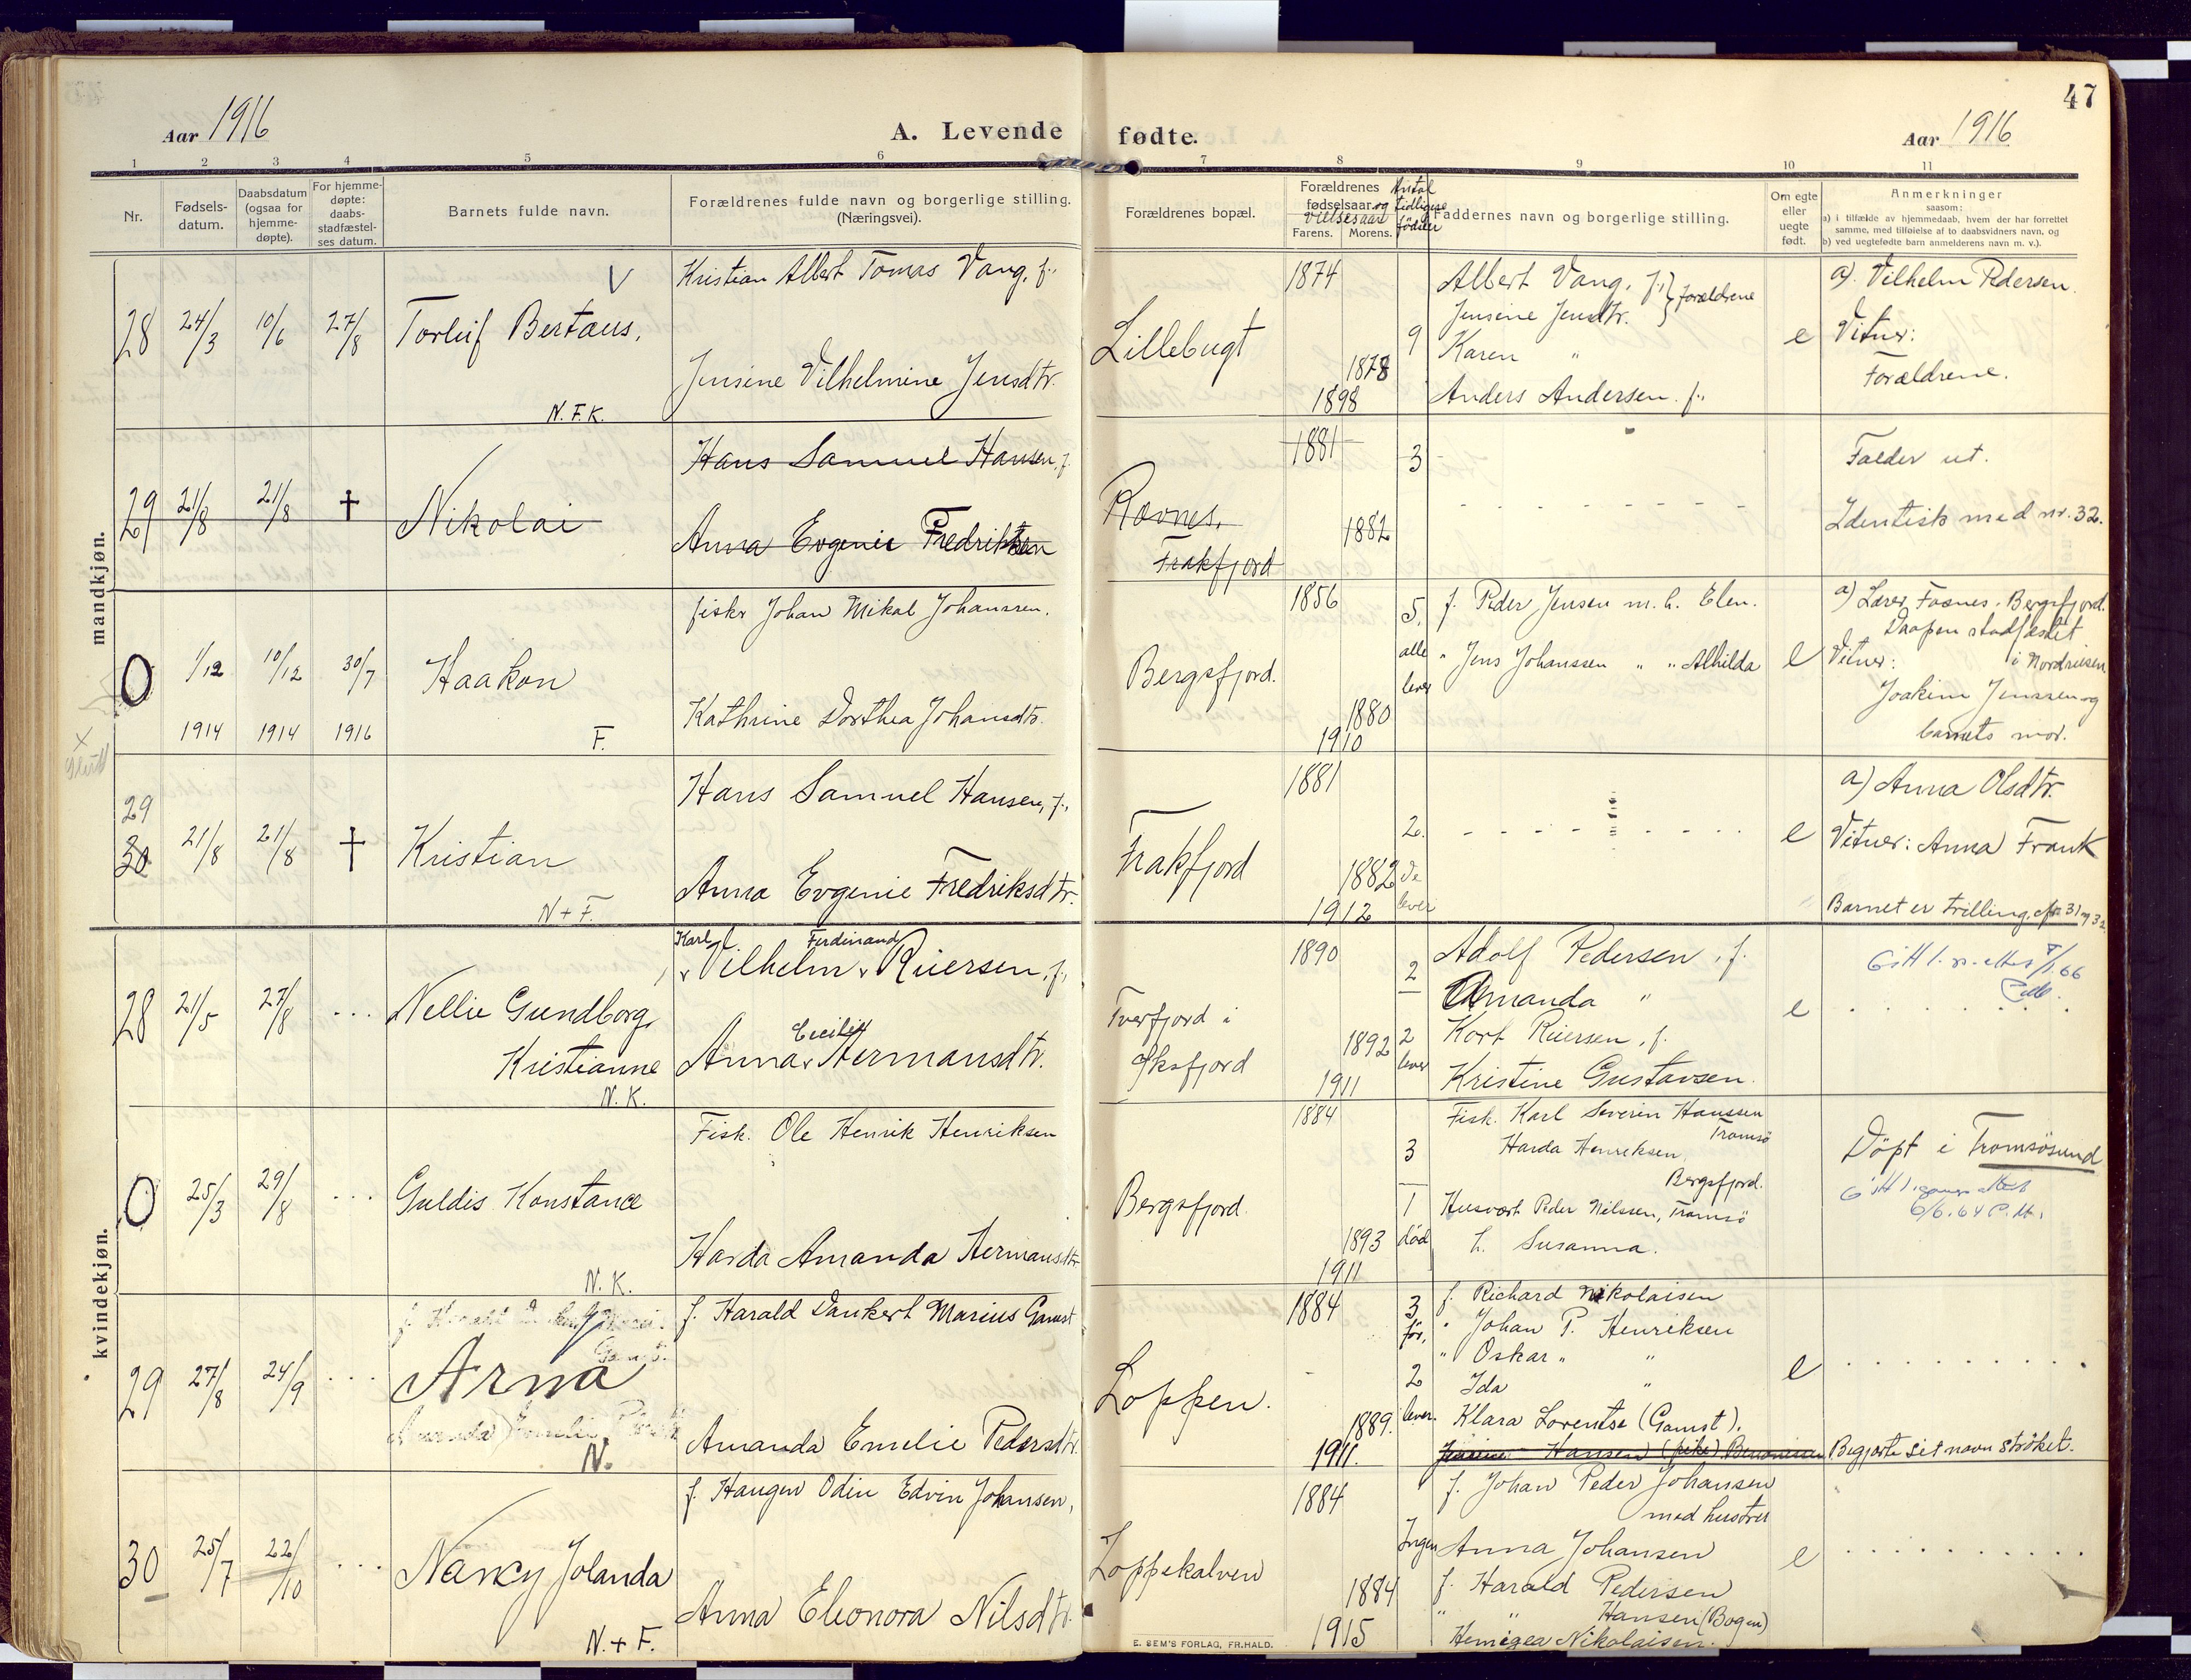 47
Aar 1916
A. Levende fødte.
Aar 1916
1 2 3 4 5 6 7 8 9 10 11
Nr.
Fødsels-
datum.
Daabsdatum
(ogsaa for
hjemme-
døpte).
For hjemme-
døpte:
daabs-
stadfæstel-
ses datum.
Barnets fulde navn.
Forældrenes fulde navn og borgerlige stilling.
(Næringsvei).
Forældrenes bopæl.
Forældrenes
fødselsaar og
vielsesaar
Farens. Morens.
Antal
tidligere
födsler
Faddernes navn og borgerlige stilling.
Om egte
eller
uegte
født.
Anmerkninger
saasom:
a) i tilfælde av hjemmedaab, hvem der har forrettet
samme, med tilføielse af to daabsvidners navn, og
b) ved uegtefødte barn anmelderens navn m. v.).
mandkjøn.
28 24/3 10/6 27/8 Torleif Bertaus.
N.F.K.
Kristian Albert Tomas Vang, f.
Jensine Vilhelmine Jensdtr.
Lillebugt
1874
1878
1898
9
Albert Vang, f. } forældrene
Jensine Jensdtr.
Karen "
Anders Andersen. f.
e
a). Vilhelm Pedersen.
Vitner:
Forældrene.
29 21/8 21/8 † Nikolai
Hans Samuel Hansen, f.
Anna Evgenie Fredriksen
Ravnes.
Frakfjord
1881
1882
3
Falder ut.
Identisk med nr. 32.
0 1/12 10/12 30/7 Haakon
1914 1914 1916
F.
fisker Johan Mikal Johanssen.
Kathrine Dorthea Johansdtr.
Bergsfjord.
1856
1880
1910
5.
alle
lever
f. Peder Jensen m. h. Elen.
" Jens Johanssen " " Alhilda
e
a) Lærer Fosnes. Bergsfjord.
Daapen stadfæstet
i Nordreisen
Vitner:
Joakim Jenssen og
barnets mor.
29
30 21/8 21/8 † Kristian
N+F.
Hans Samuel Hansen, f.
Anna Evgenie Fredriksdtr.
Frakfjord
1881
1882
1912
2.
de
lever
e
a) Anna Olsdtr.
Vitner: Anna Frank
Barnet er trilling cfr. 31 og 32.
kvindekjøn.
28 21/5 27/8 ... Nellie Gundborg
Kristianne
N.K.
Karl Ferdinand
Vilhelm Riiersen, f.
Cecilie
Anna Hermansdtr.
Tverfjord i
Øksfjord
1890
1892
1911
2
2
lever
Adolf Pedersen, f.
Amanda "
Kort Riiersen, f.
Kristine Gustavsen.
e
0 25/3 29/8 ... Guldis Konstance
N.K.
Fisk. Ole Henrik Henriksen
Harda Amanda Hermansdtr.
Bergsfjord.
1884
1893
1911
3
1
död
Fisk. Karl Severin Hanssen
Tromsö
Harda Henriksen,
Bergsfjord.
Husvært Peder Nilssen, Tromsö
h. Susanna.
Döpt i Tromsösund
29 27/8 24/9 ... Arna
N.
f. Harald Dankert Marius Gamst
Amanda Emelie Pedersdtr.
Loppen.
1884
1889.
1911.
3
för,
2
lever.
f. Richard Nikolaisen
" Johan P. Henriksen
" Oskar " "
Ida "
Klara Lorentse (Gamst).
e
Begjærte sit navn ströket.
30 25/7 22/10 ... Nancy Jolanda
N.+F.
f. Haugen Odin Edvin Johansen,
Anna Eleonora Nilsdtr.
Loppekalven
1884
1884
1915
Ingen
f. Johan Peder Johansen
med hustru
Anna Johansen
f. Harald Pedersen
" " Hansen (Bogen)
Nikolaisen.
e
E. SEM'S FORLAG, FR.HALD.